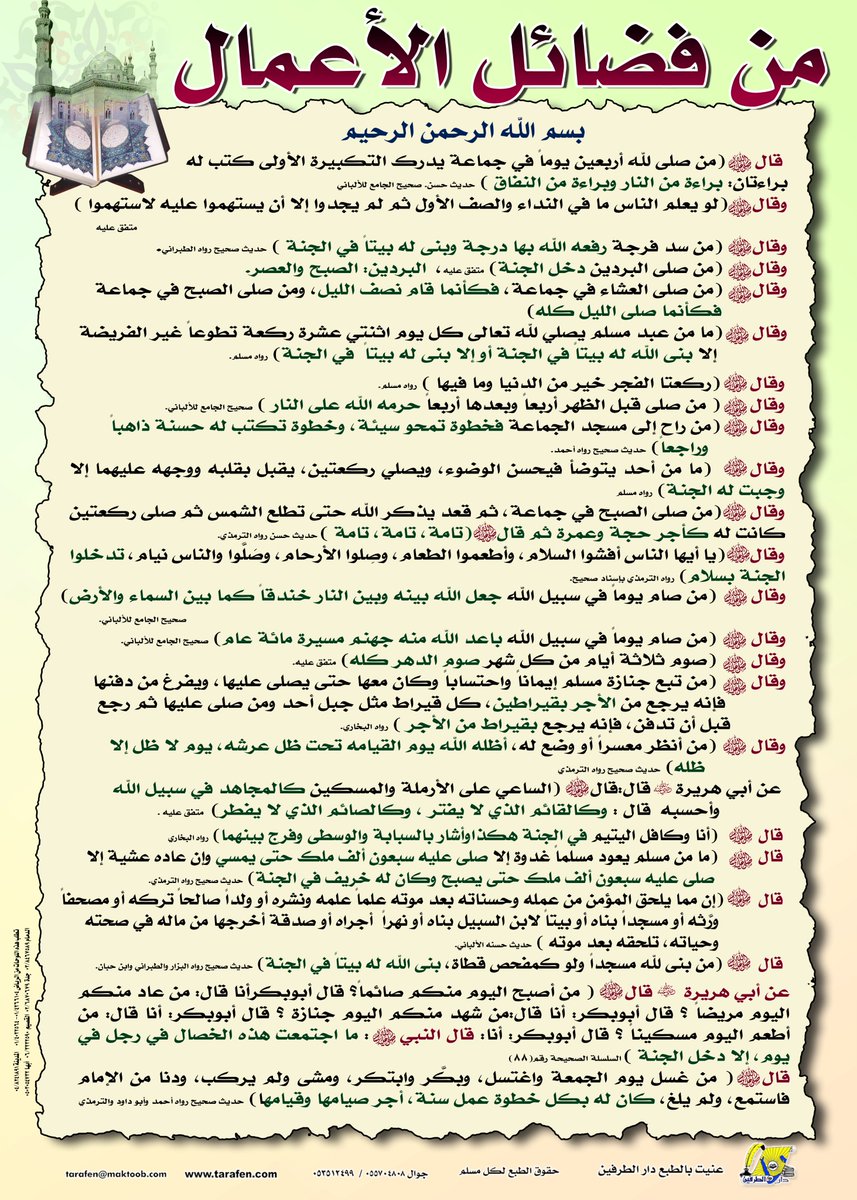 من فضائل الأعمال
بسم الله الرحمن الرحيم
قال ﷺ (من صلى لله أربعين يوماً في جماعة يدرك التكبيرة الأولى كتب له
براءتان: براءة من النار وبراءة من النفاق ) حديث حسن. صحيح الجامع للألباني
وقال ﷺ (لو يعلم الناس ما في النداء والصف الأول ثم لم يجدوا إلا أن يستهموا عليه لاستهموا )
متفق عليه
وقال ﷺ (من سد فرجة رفعه الله بها درجة وبنى له بيتاً في الجنة ) حديث صحيح رواه الطبراني.
وقال ﷺ (من صلى البردين دخل الجنة) متفق عليه، البردين: الصبح والعصر.
وقال ﷺ (من صلى العشاء في جماعة، فكأنما قام نصف الليل، ومن صلى الصبح في جماعة
فكأنما صلى الليل كله)
وقال ﷺ (ما من عبد مسلم يصلي لله تعالى كل يوم اثنتي عشرة ركعة تطوعاً غير الفريضة
إلا بنى الله له بيتاً في الجنة أو إلا بنى له بيتاً في الجنة) رواه مسلم.
وقال ﷺ (ركعتا الفجر خير من الدنيا وما فيها ) رواه مسلم.
وقال ﷺ ( من صلى قبل الظهر أربعاً وبعدها أربعاً حرمه الله على النار ) صحيح الجامع للألباني.
وقال ﷺ (من راح إلى مسجد الجماعة فخطوة تمحو سيئة، وخطوة تكتب له حسنة ذاهباً
وراجعاً) حديث صحيح رواه أحمد.
وقال ﷺ (ما من أحد يتوضأ فيحسن الوضوء، ويصلي ركعتين، يقبل بقلبه ووجهه عليهما إلا
وجبت له الجنة) رواه مسلم
وقال ﷺ (من صلى الصبح في جماعة، ثم قعد يذكر الله حتى تطلع الشمس ثم صلى ركعتين
كانت له كأجر حجة وعمرة ثم قال ﷺ (تامة، تامة، تامة ) حديث حسن رواه الترمذي.
وقال ﷺ (يا أيها الناس أفشوا السلام، وأطعموا الطعام، وصِلوا الأرحام، وصَلُّوا والناس نيام، تدخلوا
الجنة بسلام) رواه الترمذي بإسناد صحيح.
وقال ﷺ (من صام يوماً في سبيل الله جعل الله بينه وبين النار خندقاً كما بين السماء والأرض)
صحيح الجامع للألباني.
وقال ﷺ (من صام يوماً في سبيل الله باعد الله منه جهنم مسيرة مائة عام) صحيح الجامع للألباني.
وقال ﷺ (صوم ثلاثة أيام من كل شهر صوم الدهر كله) متفق عليه.
وقال ﷺ (من تبع جنازة مسلم إيماناً واحتساباً وكان معها حتى يصلى عليها، ويفرغ من دفنها
فإنه يرجع من الأجر بقيراطين، كل قيراط مثل جبل أحد ومن صلى عليها ثم رجع
قبل أن تدفن، فإنه يرجع بقيراط من الأجر ) رواه البخاري.
وقال ﷺ (من أنظر معسراً أو وضع له، أظله الله يوم القيامه تحت ظل عرشه، يوم لا ظل إلا
ظله) حديث صحيح رواه الترمذي
عن أبي هريرة ﵁ قال: قال ﷺ (الساعي على الأرملة والمسكين كالمجاهد في سبيل الله
وأحسبه قال : وكالقائم الذي لا يفتر ، وكالصائم الذي لا يفطر) متفق عليه .
قال ﷺ (أنا وكافل اليتيم في الجنة هكذا وأشار بالسبابة والوسطى وفرج بينهما) رواه البخاري
قال ﷺ (ما من مسلم يعود مسلماً غدوة إلا صلى عليه سبعون ألف ملك حتى يمسي وإن عاده عشية إلا
صلى عليه سبعون ألف ملك حتى يصبح وكان له خريف في الجنة) حديث صحيح رواه الترمذي.
قال ﷺ (إن مما يلحق المؤمن من عمله وحسناته بعد موته علماً علمه ونشره أو ولداً صالحاً تركه أو مصحفاً
ورَّثه أو مسجداً بناه أو بيتاً لابن السبيل بناه أو نهراً أجراه أو صدقة أخرجها من ماله في صحته
وحياته، تلحقه بعد موته ) حديث حسنه الألباني.
قال ﷺ (من بنى لله مسجداً ولو كمفحص قطاة، بنى الله له بيتاً في الجنة) حديث صحيح رواه البزار والطبراني وابن حبان.
عن أبي هريرة ﵁ قال ﷺ ( من أصبح اليوم منكم صائماً؟ قال أبوبكر أنا قال: من عاد منكم
اليوم مريضاً ؟ قال أبوبكر: أنا قال:من شهد منكم اليوم جنازة ؟ قال أبوبكر: أنا قال: من
أطعم اليوم مسكيناً ؟ قال أبوبكر: أنا: قال النبي ﷺ : ما اجتمعت هذه الخصال في رجل في
يوم، إلا دخل الجنة ) السلسلة الصحيحة رقم(٨٨)
قال ﷺ ( من غسل يوم الجمعة واغتسل، وبكَّر وابتكر، ومشى ولم يركب، ودنا من الإمام
فاستمع، ولم يلغ، كان له بكل خطوة عمل سنة، أجر صيامها وقيامها) حديث صحيح رواه أحمد وأبو داود والترمذي
عنيت بالطبع دار الطرفين
حقوق الطبع لكل مسلم
جوال ٠٥٥٧٠٤٨٠٨ / ٠٥٣٥١٢٤٩٩
www.tarafen.com
tarafen@maktoob.com
دار الطرفين